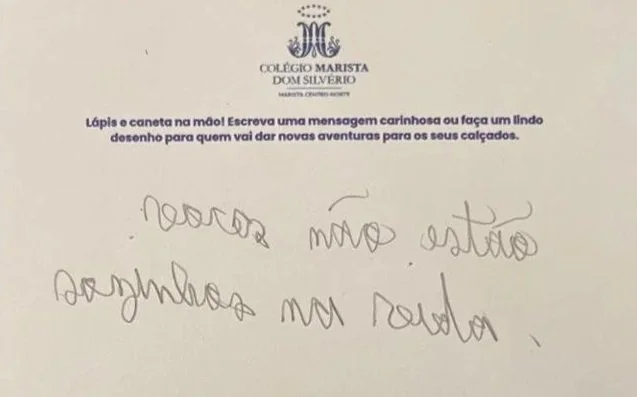 COLÉGIO MARISTA
DOM SILVÉRIO
MARISTA CENTRO-NORTE
Lápis e caneta na mão! Escreva uma mensagem carinhosa ou faça um lindo
desenho para quem vai dar novas aventuras para os seus calçados.
voces não estão
sozinhos na vida.